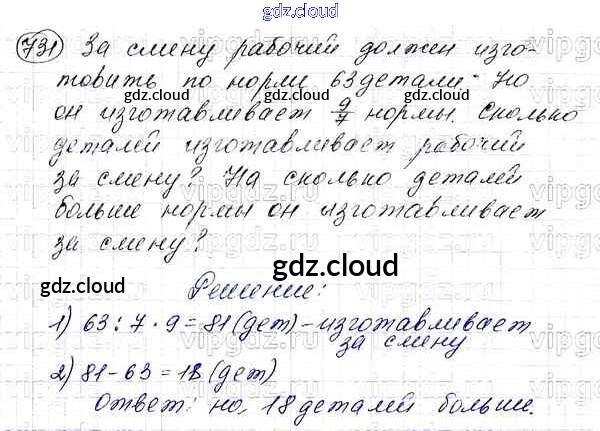 gdz.cloud
731 За смену рабочий должен изго-
товить по норми 63 детали. Но
gdz.cloud gdz.cloud
он изготавливает 9/7 нормы. Сколько
деталей изготавливает рабочий
за смену? На сколько деталей
больше нормы он изготавливает
за смену?
gdz.cloud
gdz.cloud
Решение:
1) 63 : 7 · 9 = 81 (дет) – изготавливает
за смену
2) 81 - 63 = 18 (дет)
Ответ: на 18 деталей больше.
gdz.cloud